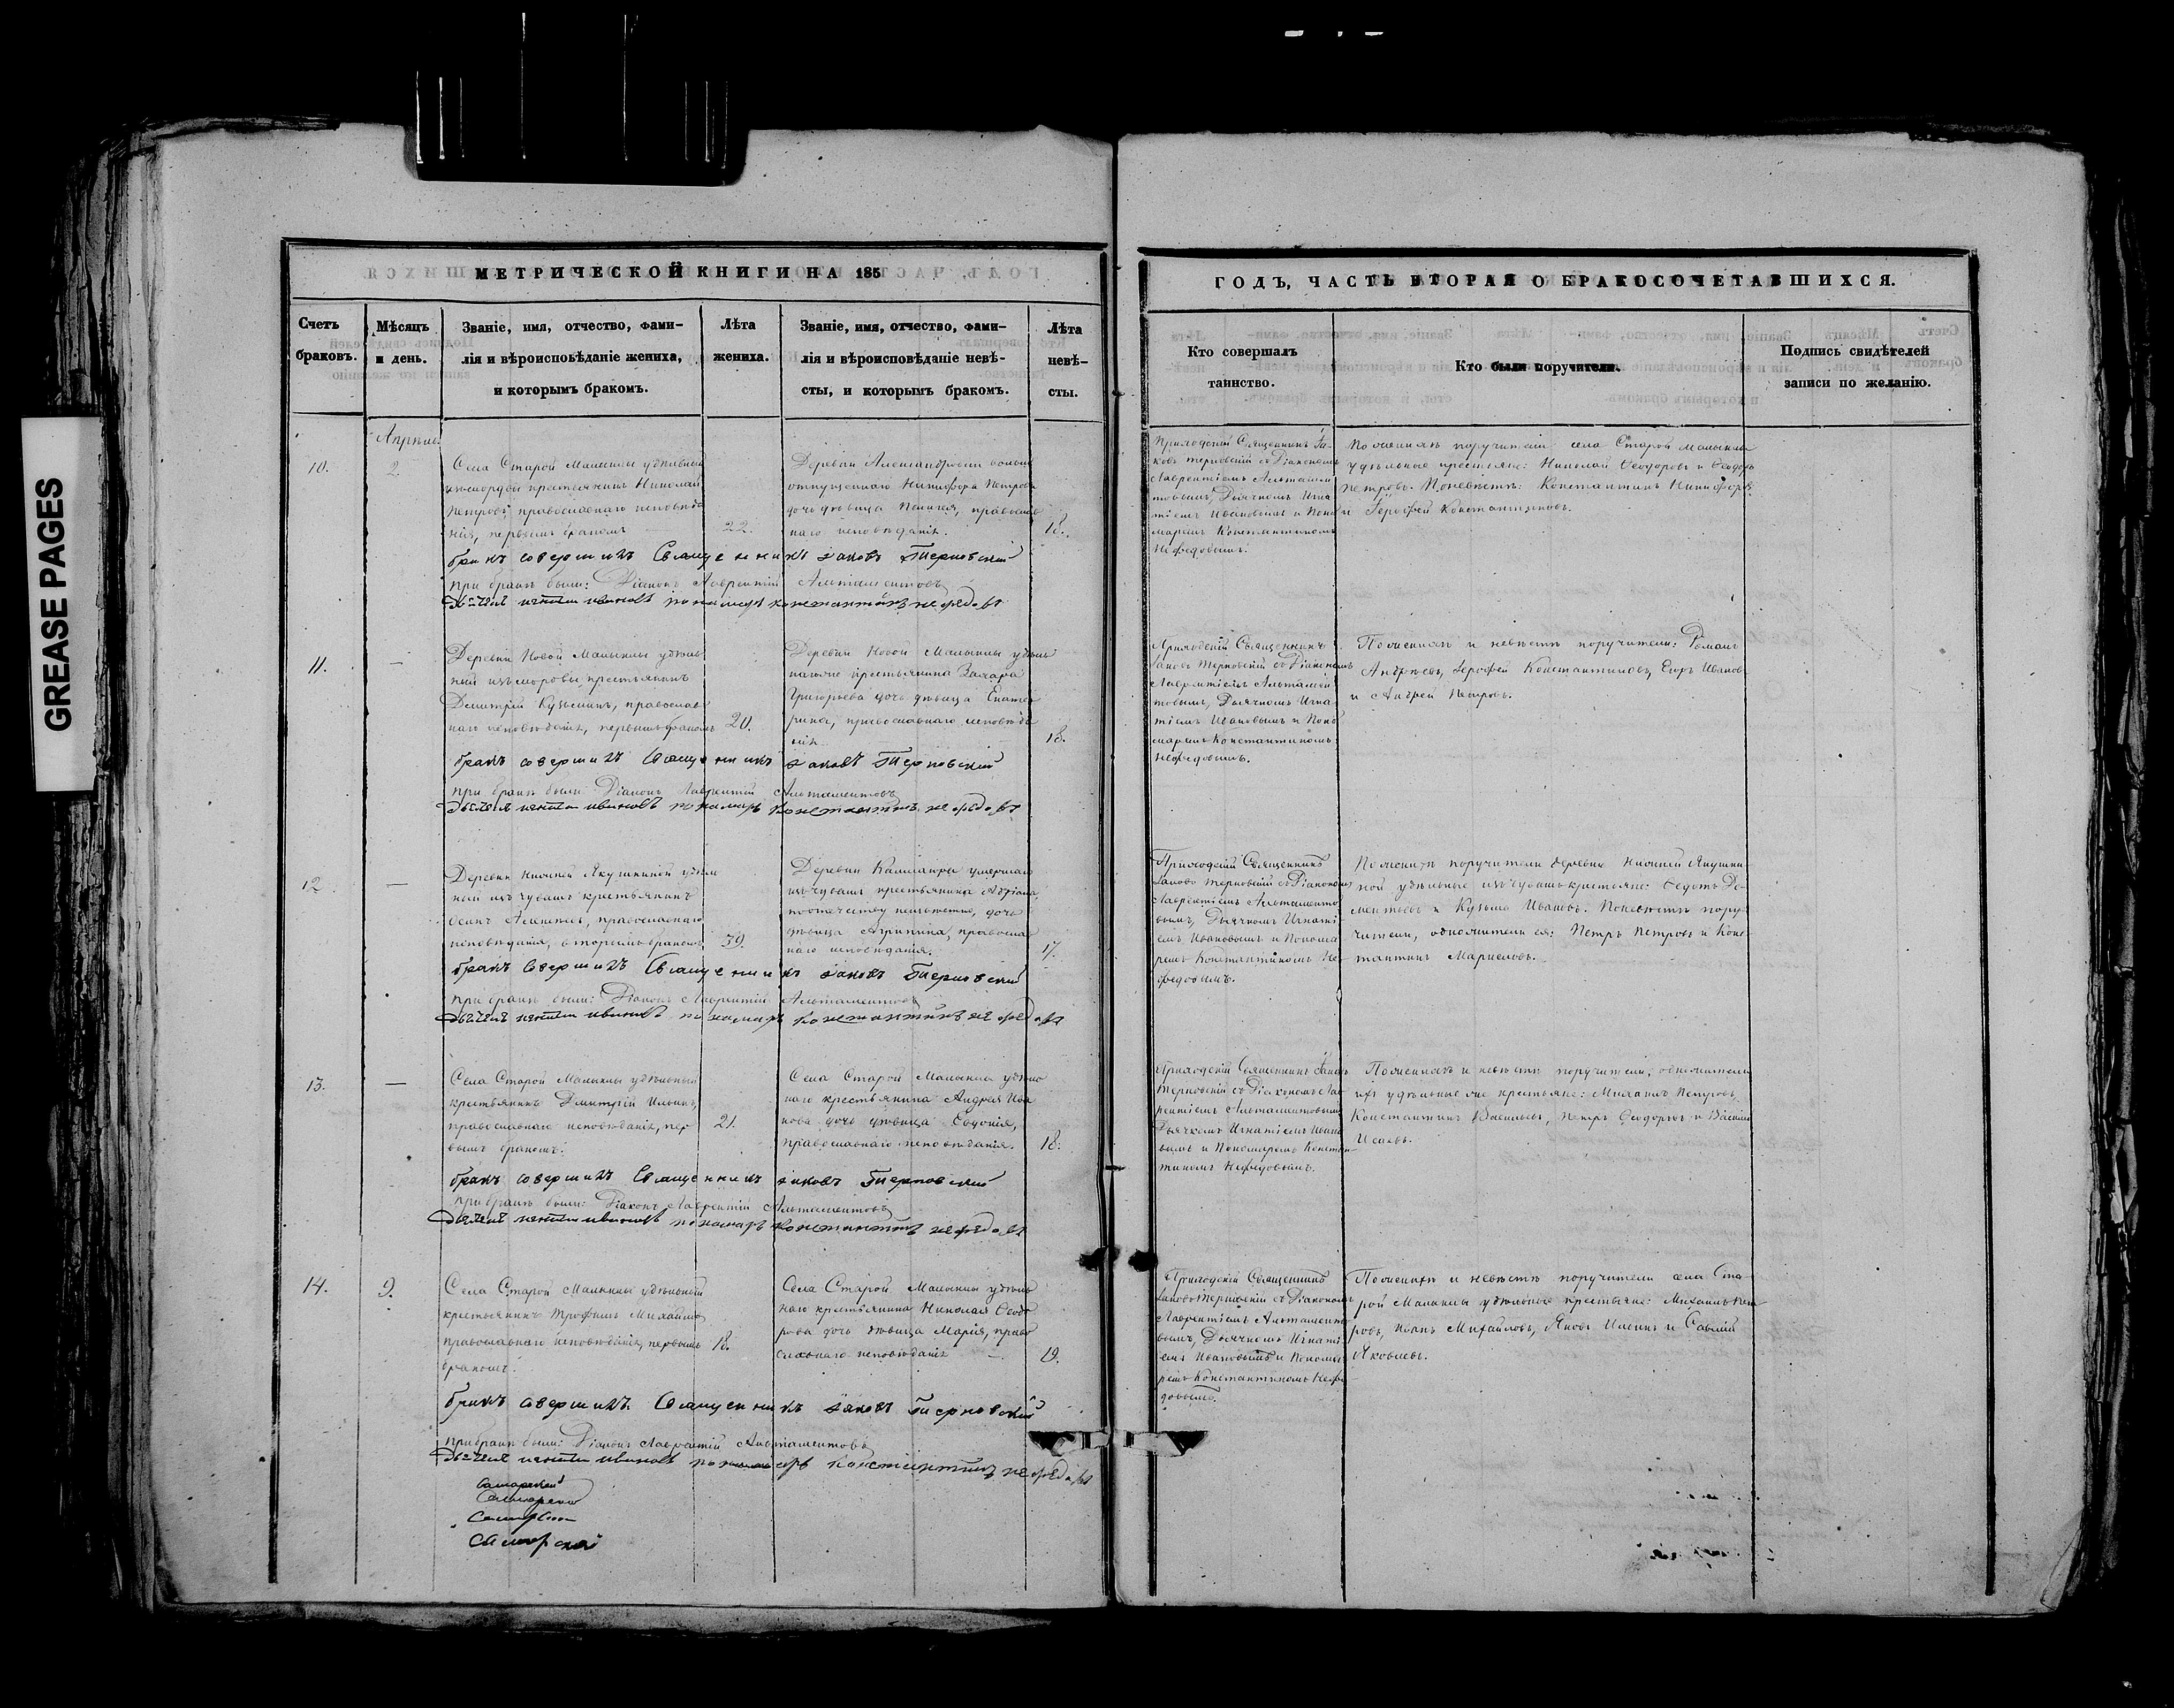 GREASE PAGES
МЕТРИЧЕСКОЙ КНИГИ НА 185
Счетъ браковъ.
Мѣсяцъ и день.
Званіе, имя, отчество, фами-
лія и вѣроисповѣданіе жениха,
и которымъ бракомъ.
Лѣта жениха.
Званіе, имя, отчество, фами-
лія и вѣроисповѣданіе невѣ-
сты, и которымъ бракомъ.
Лѣта невѣ-
сты.
Апрѣль
10.
2.
Села Старой Малыклы удѣльный
крестьянинъ Николай
Петровъ, православнаго исповѣда
нія, первымъ бракомъ
22.
Деревни Александровки вольно
отпущеннаго Никифора Петрова
дочь дѣвица православ
наго исповѣданія.
18.
бракъ совершилъ Священникъ Іаковъ Терновскій
при бракѣ были: Діаконъ Лаврентій Альтаментовъ
Дьячекъ Игнатій Ивановъ пономарь Константинъ Нефедовъ
11.
—
Деревни Новой Малыклы удѣль
ный крестьянинъ
Димитрій Кузьминъ, православ
наго исповѣданія, первымъ бракомъ
20.
Деревни Новой Малыклы удѣль
наго крестьянина Захара
Григорьева дочь дѣвица Екате
рина, православнаго исповѣда
нія
18.
бракъ совершилъ Священникъ Іаковъ Терновскій
при бракѣ были Діаконъ Лаврентій Альтаментовъ
Дьячекъ Игнатій Ивановъ пономарь Константинъ Нефедовъ
12.
—
Деревни Нижней Якушкиной удѣль
ный изъ чувашъ крестьянинъ
Алексѣевъ, православнаго
исповѣданія, вторымъ бракомъ
39.
Деревни умершаго
изъ чувашъ крестьянина
дочь
дѣвица Агрипина, православ
наго исповѣданія.
17.
бракъ совершилъ Священникъ Іаковъ Терновскій
при бракѣ были: Діаконъ Лаврентій Альтаментовъ
Дьячекъ Игнатій Ивановъ пономарь Константинъ Нефедовъ
13.
—
Села Старой Малыклы удѣльный
крестьянинъ Дмитрій Ильинъ,
православнаго исповѣданія, пер
вымъ бракомъ.
21.
Села Старой Малыклы удѣль
наго крестьянина Андрея Ива
нова дочь дѣвица Евдокія,
православнаго исповѣданія.
18.
бракъ совершилъ Священникъ Іаковъ Терновскій
при бракѣ были: Діаконъ Лаврентій Альтаментовъ
Дьячекъ Игнатій Ивановъ пономарь Константинъ Нефедовъ
14.
9.
Села Старой Малыклы удѣльный
крестьянинъ Трофимъ Михайловъ
православнаго исповѣданія, первымъ
бракомъ.
18.
Села Старой Малыклы удѣль
наго крестьянина Николая Ѳеодо
рова дочь дѣвица Марія, право
славнаго исповѣданія
19.
бракъ совершилъ Священникъ Іаковъ Терновскій
при бракѣ были: Діаконъ Лаврентій Альтаментовъ
Дьячекъ Игнатій Ивановъ пономарь Константинъ Нефедовъ
ГОДЪ, ЧАСТЬ ВТОРАЯ О БРАКОСОЧЕТАВШИХСЯ.
Кто совершалъ
таинство.
Кто были поручители.
Подпись свидѣтелей
записи по желанію.
Приходскій Священникъ Іа-
ковъ Терновскій съ Діакономъ
Лаврентіемъ Альтамен
товымъ, Дьячкомъ Игна
тіемъ Ивановымъ и Поно
маремъ Константиномъ
Нефедовымъ.
По женихѣ поручители села Старой Малыклы
удѣльные крестьяне: Николай Ѳеодоровъ и Ѳеодоръ
Петровъ. По невѣстѣ: Константинъ Никифоровъ
и Ерофей Константиновъ.
Приходскій Священникъ
Іаковъ Терновскій съ Діакономъ
Лаврентіемъ Альтамен
товымъ, Дьячкомъ Игна
тіемъ Ивановымъ и Поно
маремъ Константиномъ
Нефедовымъ.
По женихѣ и невѣстѣ поручители: Романъ
Андреевъ, Ерофей Константиновъ, Егоръ Ивановъ
и Андрей Петровъ.
Приходскій Священникъ
Іаковъ Терновскій съ Діакономъ
Лаврентіемъ Альтаменто
вымъ, Дьячкомъ Игнаті
емъ Ивановымъ и Понома
ремъ Константиномъ Не
федовымъ.
По женихѣ поручители деревни Нижней Якушки
ной удѣльные изъ чувашъ крестьяне: Ѳедотъ Де-
ментьевъ и Кузьма Ивановъ. По невѣстѣ пору-
чители, одножители ея: Петръ Петровъ и Конс
тантинъ
Приходскій Священникъ Іаковъ
Терновскій съ Діакономъ Лав
рентіемъ Альтаментовымъ
Дьячкомъ Игнатіемъ Ивано
вымъ и Пономаремъ Констан-
тиномъ Нефедовымъ.
По женихѣ и невѣстѣ поручители, одножители
ихъ удѣльные крестьяне: Михаилъ Петровъ,
Константинъ Васильевъ, Петръ Ѳеодоровъ и Василій
Исаевъ.
Приходскій Священникъ
Іаковъ Терновскій съ Діакономъ
Лаврентіемъ Альтаменто
вымъ, Дьячкомъ Игнаті
емъ Ивановымъ и Понома
ремъ Константиномъ Нефе
довымъ.
По женихѣ и невѣстѣ поручители села Ста-
рой Малыклы удѣльные крестьяне: Михаилъ Пет
ровъ, Иванъ Михайловъ, Яковъ Ильинъ и Савелій
Яковлевъ.